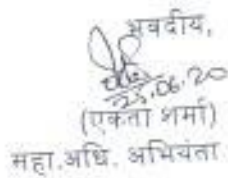 भवदीय,
25.06.20
(एकता शर्मा)
महा.अधि. अभियंता